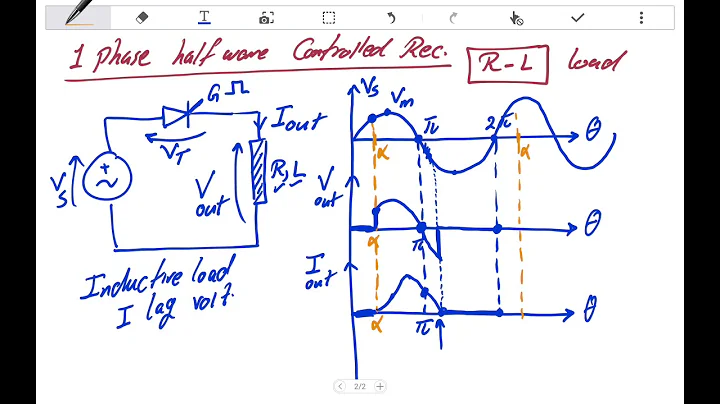 1 phase half wave Controlled Rec. R-L load
G
Iout
VT
+
VS
Vout
R, L
Inductive load
I lag volt.
VS
Vm
α
π
2π
α
θ
Vout
α
π
θ
Iout
α
π
θ
2/2